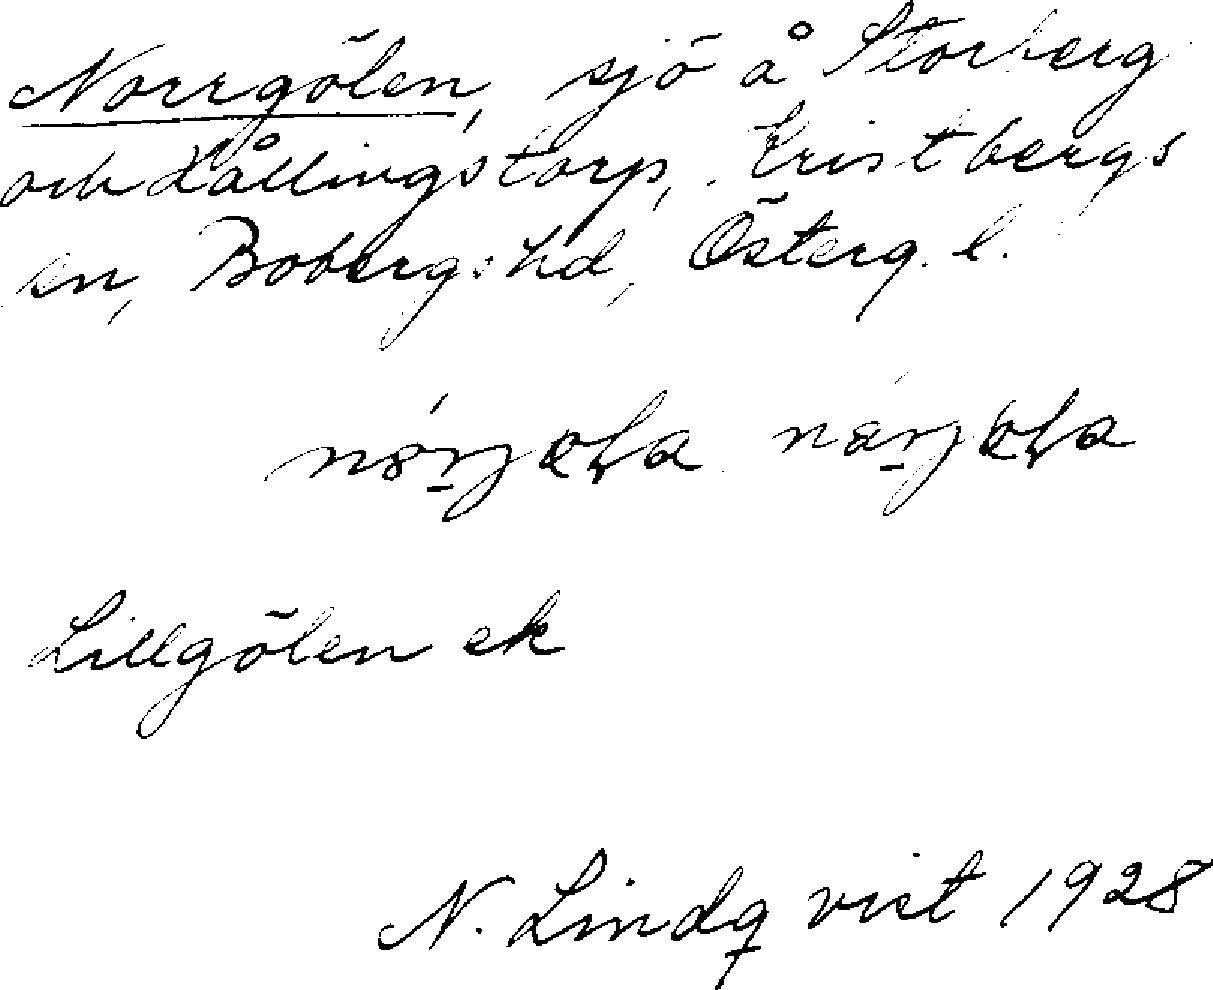 Norrgölen, sjö å Storberg
och Kållingstorp, Kristbergs
sn, Bobergs hd, Österg. l.
Lillgölen ek
N. Lindqvist 1928